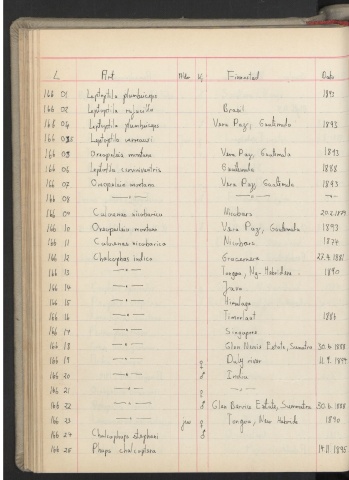 L Art Alder Kj. Finnested Dato
166 01 Leptoptila plumbiceps 1893
166 02 Leptoptila Brasil
166 04 Leptoptila plumbiceps Vera Paz, Guatemala 1893
166 Leptoptila verreauxi
166 05 Oreopeleia montana Vera Paz, Guatemala 1893
166 06 Leptoptila Guatemala 1888
166 07 Oreopeleia montana Vera Paz, Guatemala 1893
166 08 —"— —"—
166 09 Caloenas nicobarica Nicobars
166 10 Oreopeleia montana Vera Paz, Guatemala 1893
166 11 Caloenas nicobarica Nicobars 1874
166 12 Chalcophas indica 1881
166 13 —"— Tongoa, Ny-Hebriderne 1890
166 14 —"— Java
166 15 —"— Himalaya
166 16 —"— Timorlaut
166 17 —"— Singapore
166 18 —"— Estate, Sumatra 30.6.1888
166 19 —"— ♀ Daly river
166 20 —"— ♂ India
166 21 —"— ♀ —"—
166 22 —"— ♂ Estate, Summatra 30.6.1888
166 23 —"— juv ♀ Tongoa, New Hebrids 1890
166 24 Chalcophaps stephani ♂
166 25 Phaps chalcoptera 1895